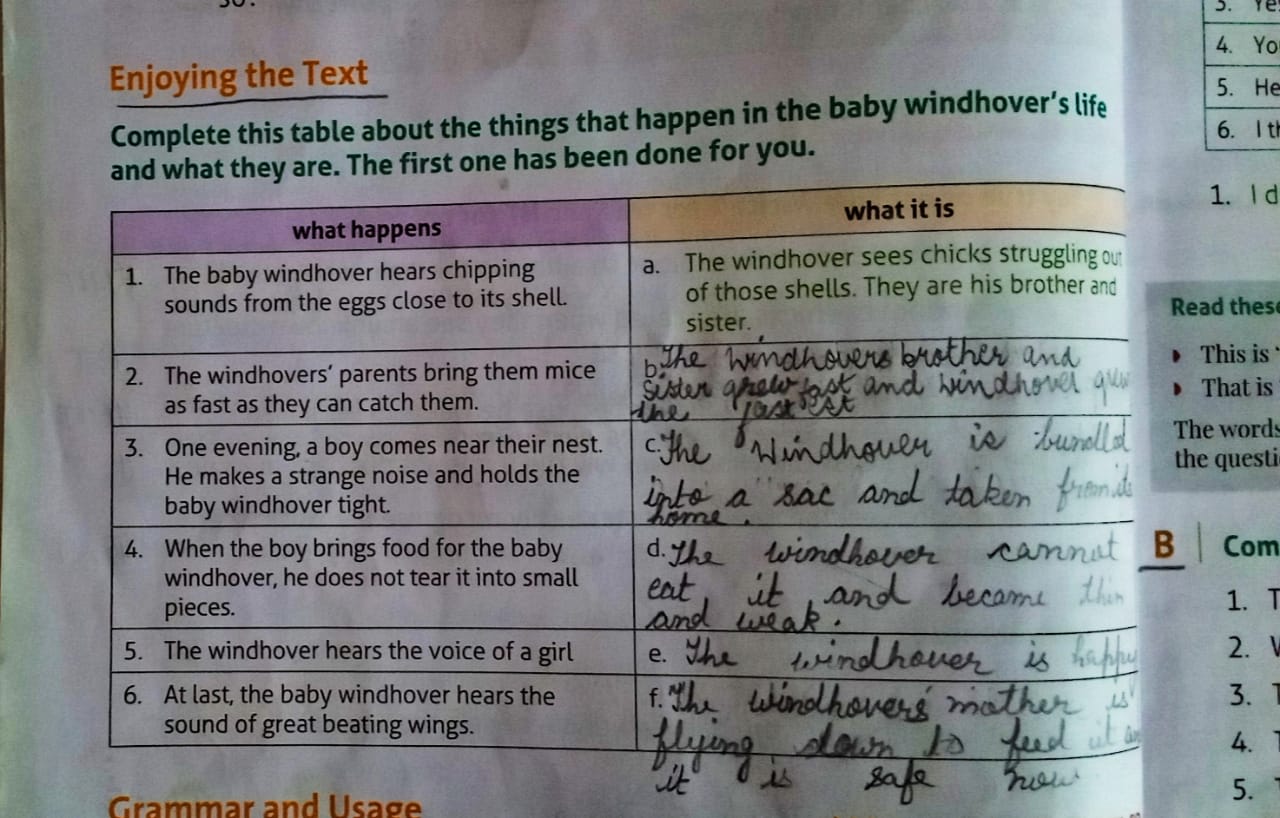 Enjoying the Text
Complete this table about the things that happen in the baby windhover's life
and what they are. The first one has been done for you.
what happens
what it is
1. The baby windhover hears chipping
sounds from the eggs close to its shell.
a. The windhover sees chicks struggling out
of those shells. They are his brother and
sister.
2. The windhovers' parents bring them mice
as fast as they can catch them.
b. The windhovers brother and
sister grew fast and windhover grew
the fastest
3. One evening, a boy comes near their nest.
He makes a strange noise and holds the
baby windhover tight.
c. The Windhover is bundled
into a sac and taken from its
home.
4. When the boy brings food for the baby
windhover, he does not tear it into small
pieces.
d. The windhover cannot
eat it and became thin
and weak.
5. The windhover hears the voice of a girl
e. The windhover is happy
6. At last, the baby windhover hears the
sound of great beating wings.
f. The windhovers' mother is
flying down to feed it
it is safe now
Grammar and Usage
3. Ye
4. Yo
5. He
6. I th
1. I d
Read these
This is
That is
The words
the questi
B Com
1. T
2.
3.
4.
5.